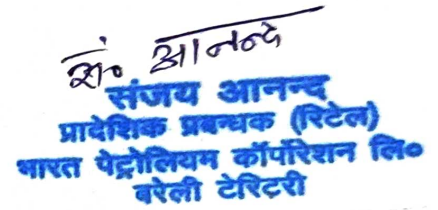 सं० आनन्द
संजय आनन्द
प्रादेशिक प्रबन्धक (रिटेल)
भारत पेट्रोलियम कॉर्पोरेशन लि०
बरेली टेरिटरी